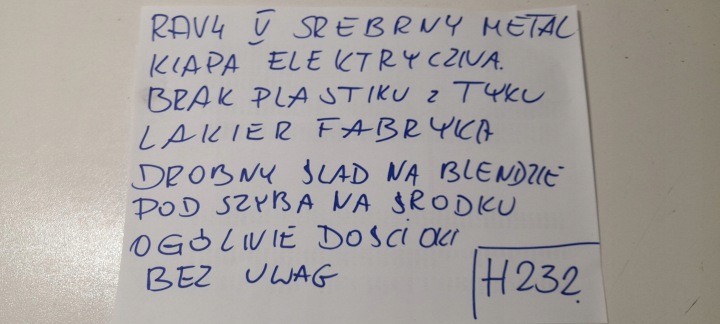 RAV4 V SREBRNY METAL
KLAPA ELEKTRYCZNA.
BRAK PLASTIKU z TYŁU
LAKIER FABRYKA
DROBNY ŚLAD NA BLENDZIE
POD SZYBĄ NA ŚRODKU
OGÓLNIE DOŚĆ OKI
BEZ UWAG
H232.